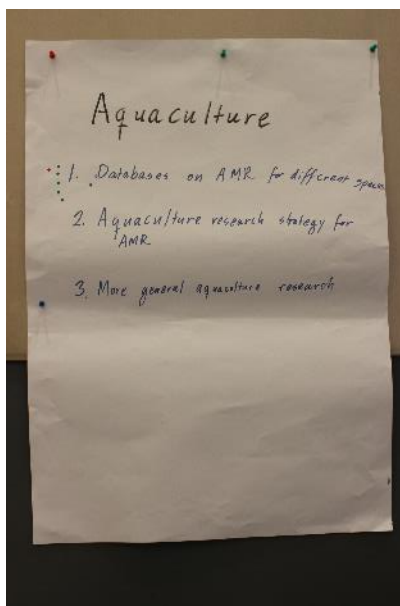 Aquaculture
1. Databases on AMR for different species
2. Aquaculture research stategy for
AMR
3. More general aquaculture research